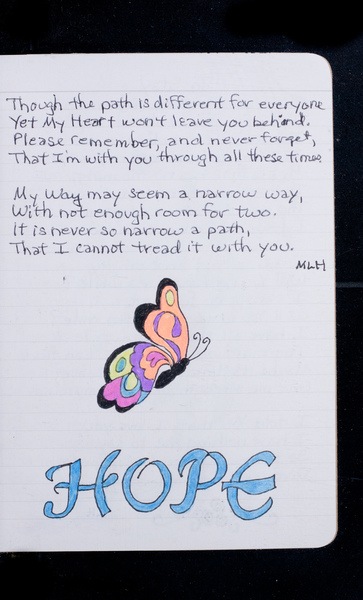 Though the path is different for everyone
Yet My Heart won't leave you behind.
Please remember, and never forget,
That I'm with you through all these times
My Way may seem a narrow way,
With not enough room for two.
It is never so narrow a path,
That I cannot tread it with you.
MLH
HOPE